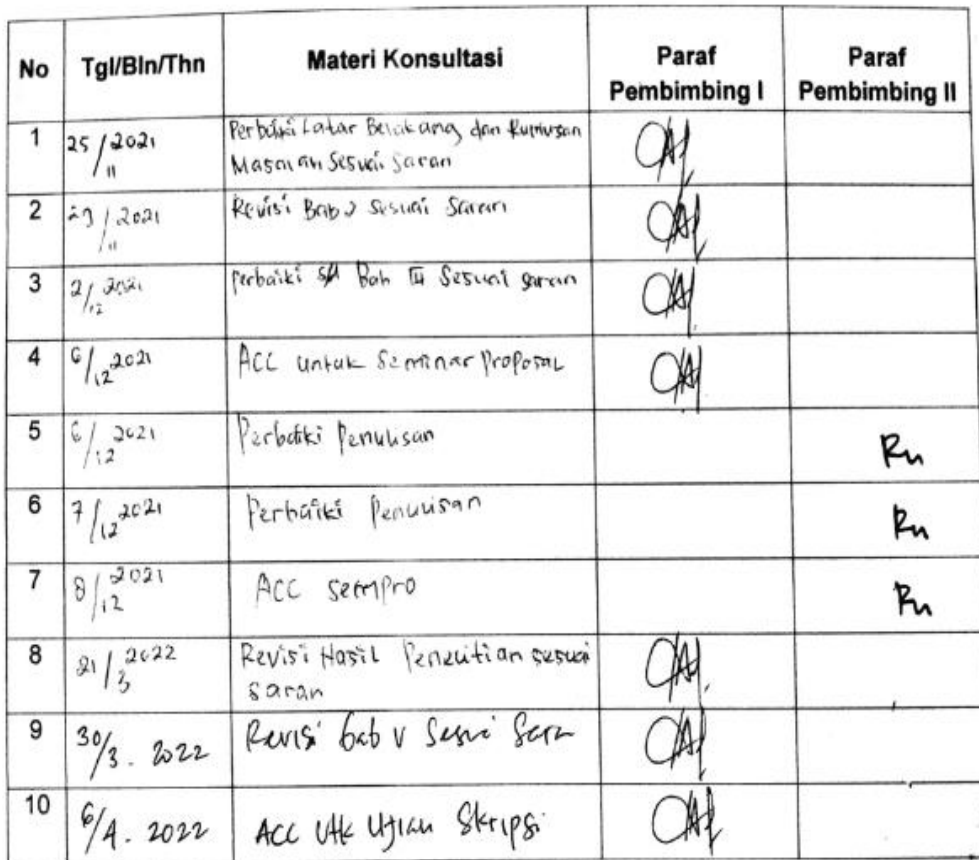 No Tgl/Bln/Thn Materi Konsultasi Paraf Pembimbing I Paraf Pembimbing II
1 25/11 2021 Perbaiki Latar Belakang dan Rumusan
Masalah Sesuai Saran
2 29/11 2021 Revisi Bab 2 Sesuai Saran
3 2/12 2021 Perbaiki Bab III Sesuai saran
4 6/12 2021 ACC untuk Seminar Proposal
5 6/12 2021 Perbaiki Penulisan Ru
6 7/12 2021 Perbaiki Penulisan Ru
7 8/12 2021 ACC sempro Ru
8 21/3 2022 Revisi Hasil Penelitian sesuai
saran
9 30/3. 2022 Revisi bab V Sesuai Saran
10 6/4. 2022 ACC Utk Ujian Skripsi